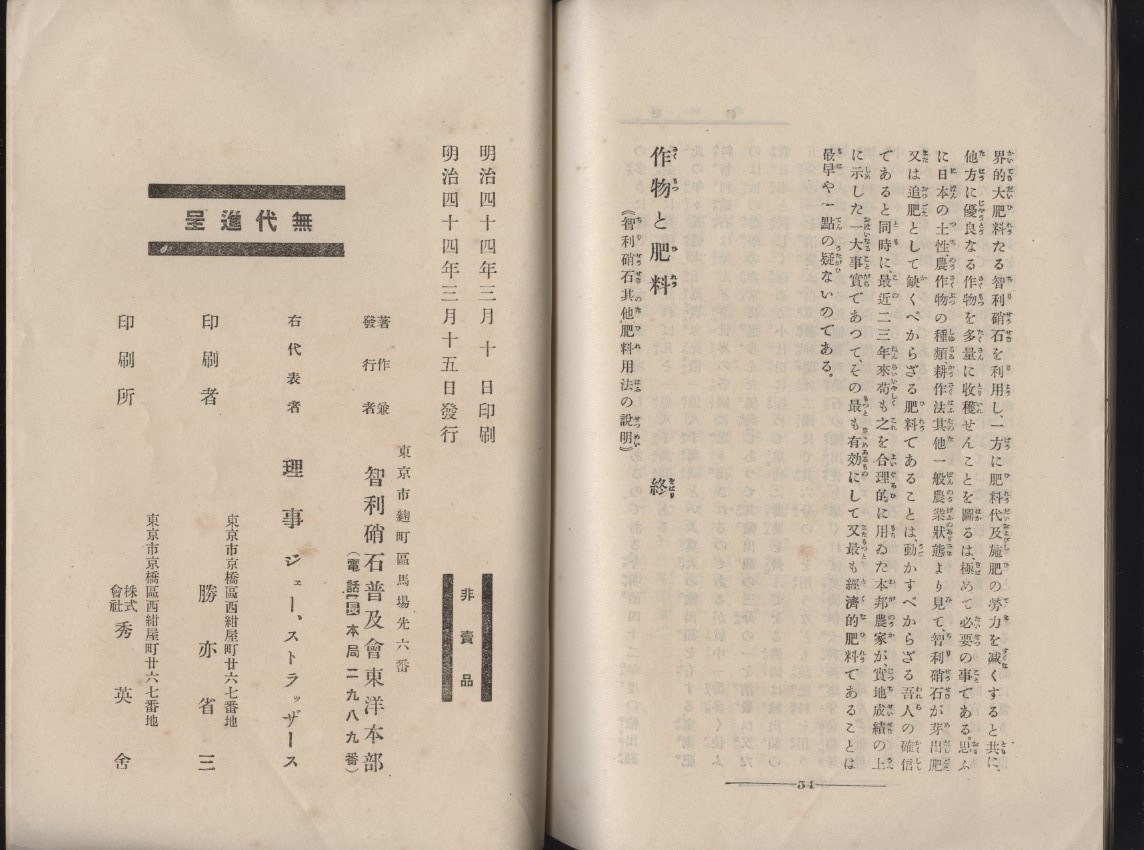 界的大肥料たる智利硝石を利用し、一方に肥料代及施肥の勞力を減くすると共に、
他方に優良なる作物を多量に收穫せんことを圖るは、極めて必要の事である。思ふ
に日本の土性、農作物の種類、耕作法其他一般農業狀態より見て、智利硝石が芽出肥
又は追肥として缺くべからざる肥料であることは、動かすべからざる吾人の確信
であると同時に、最近二三年來苟も之を合理的に用ゐた本邦農家が、實地成績の上
に示した一大事實であつて、その最も有効にして又最も經濟的肥料であることは
最早や一點の疑ないのである。
作物と肥料
(智利硝石其他肥料用法の說明)
終
54
明治四十四年三月十日印刷
明治四十四年三月十五日發行
非賣品
東京市麴町區馬場先六番
著作兼
發行者
智利硝石普及會東洋本部
(電話長本局二九八九番)
右代表者
理事 ジェー、ストラッザース
東京市京橋區西紺屋町廿六七番地
印刷者
勝亦省三
東京市京橋區西紺屋町廿六七番地
印刷所
株式會社 秀英舍
無代進呈